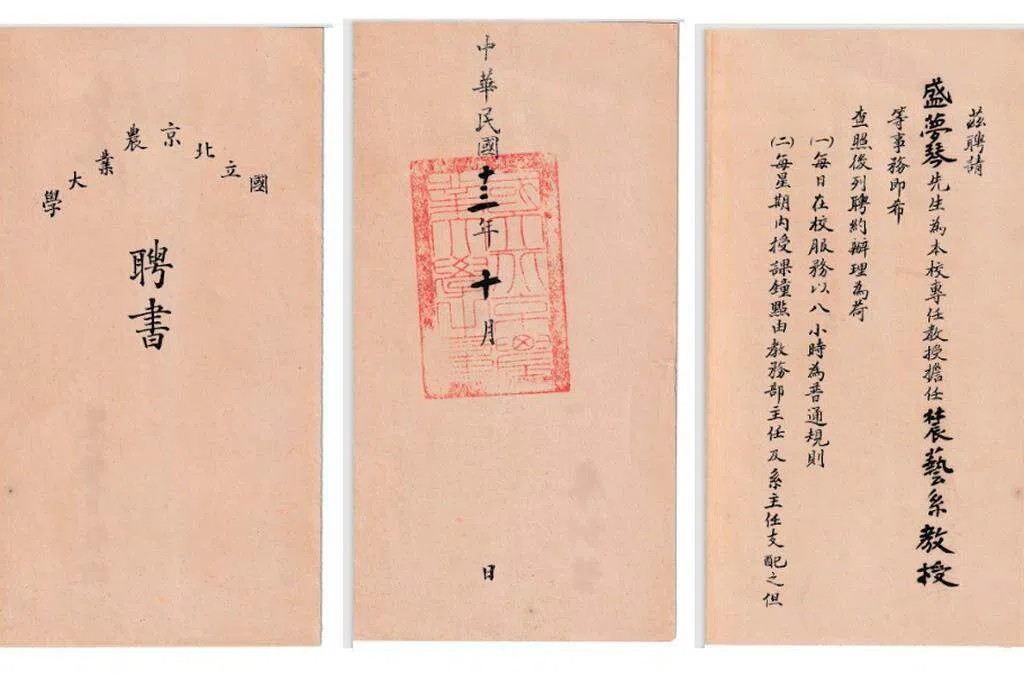 國立北京農業大學
聘書
中華民國十三年十月 日
茲聘請
盛夢琴先生為本校專任教授擔任農藝系教授
等事務即希
查照後列聘約辦理為荷
(一)每日在校服務以八小時為普通規則
(二)每星期內授課鐘點由教務部主任及系主任支配之但